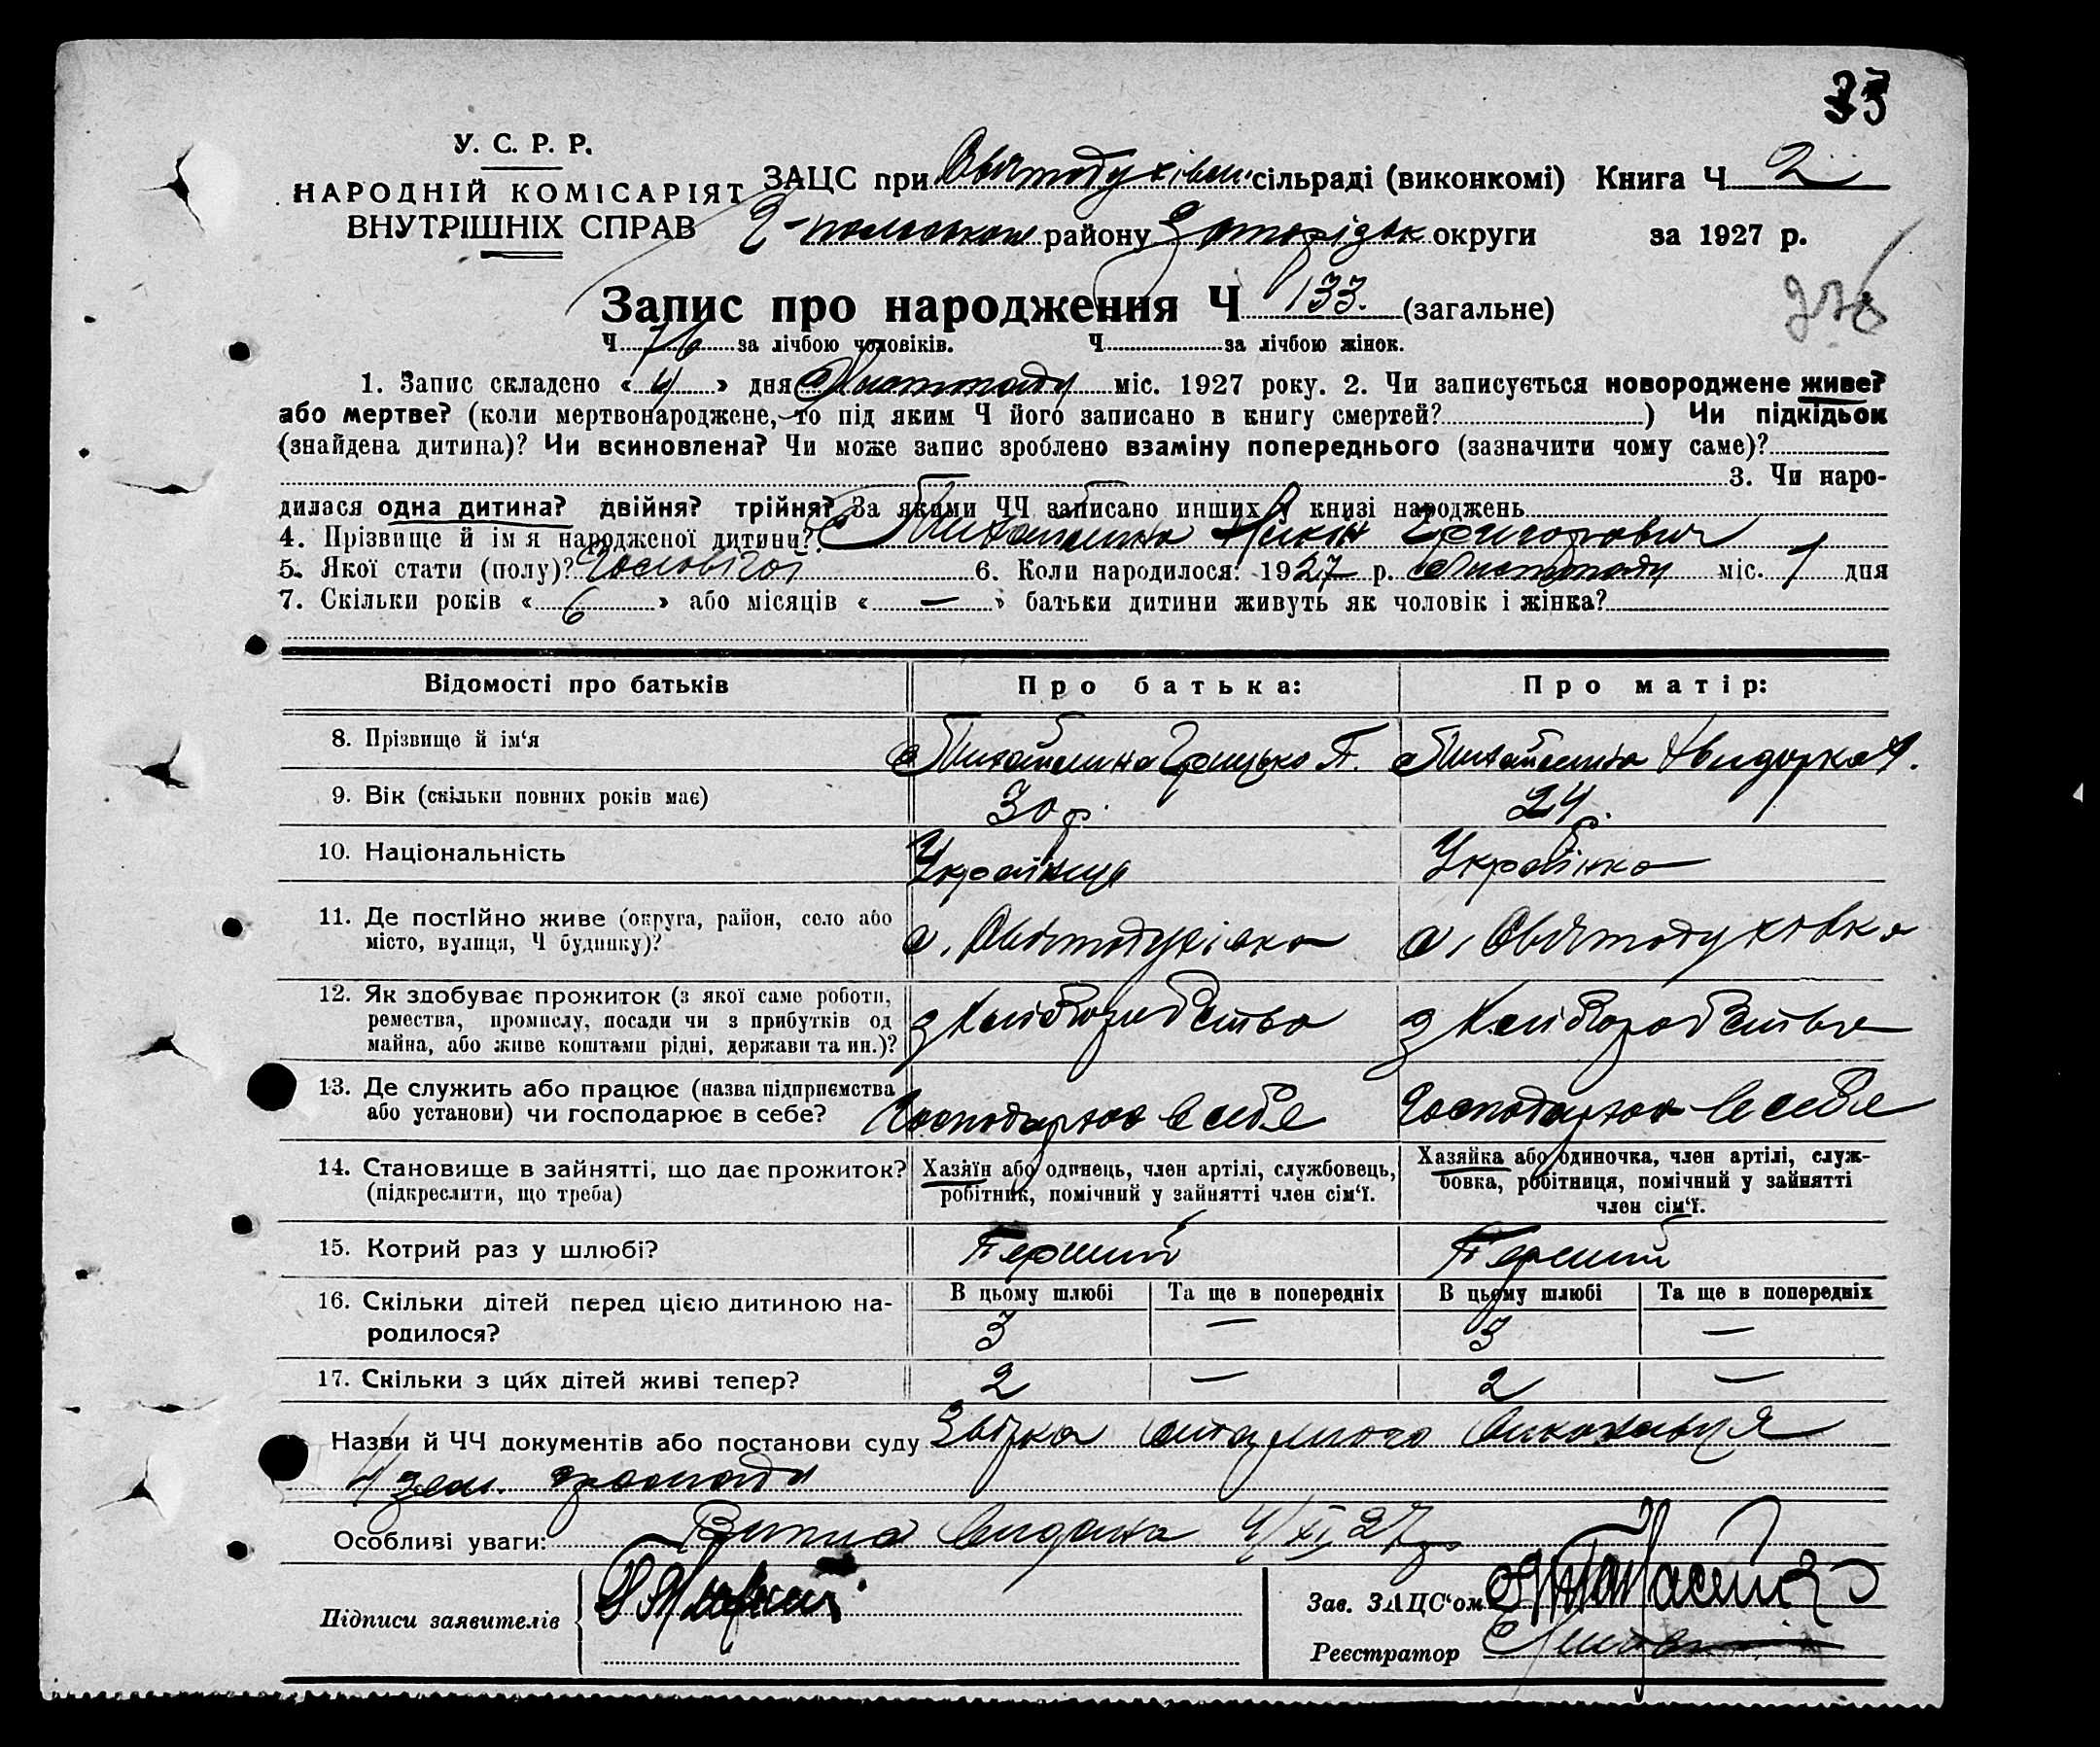 33
У. С. Р. Р.
НАРОДНІЙ КОМІСАРІЯТ
ВНУТРІШНІХ СПРАВ
ЗАЦС при Святодухівськ сільраді (виконкомі) Книга Ч 2
району Запорізьк округи за 1927 р.
Запис про народження Ч 133. (загальне)
Ч 76 за лічбою чоловіків. Ч за лічбою жінок.
1. Запис складено « 4 » дня Листопаду міс. 1927 року. 2. Чи записується новороджене живе?
або мертве? (коли мертвонароджене, то під яким Ч його записано в книгу смертей? ) Чи підкідьок
(знайдена дитина)? Чи всиновлена? Чи може запис зроблено взаміну попереднього (зазначити чому саме)?
3. Чи наро-
дилася одна дитина? двійня? трійня? За якими ЧЧ записано инших в книзі народжень
4. Прізвище й ім я народженої дитини? Григорович
5. Якої стати (полу)? Чоловічої 6. Коли народилося: 1927 р. Листопаду міс. 1 дня
7. Скільки років « 6 » або місяців « — » батьки дитини живуть як чоловік і жінка?
Відомості про батьків Про батька: Про матір:
8. Прізвище й ім‘я Грицько П.
9. Вік (скільки повних років має) 30 р. 24.
10. Національність Українця Українка
11. Де постІйно живе (округа, район, село або с. Святодухівка с. Святодуховка
місто, вулиця, Ч будинку)?
12. Як здобуває прожиток (з якої саме роботи, з Хліборобства з Хліборобства
ремества, промислу, посади чи з прибутків од
майна, або живе коштами рідні, держави та ин.)?
13. Де служить або працює (назва підприємства Господарює в себе Господарює в себе
або установи) чи господарює в себе?
14. Становище в зайнятті, що дає прожиток? Хазяїн або одинець, член артілі, службовець, Хазяйка або одиночка, член артілі, служ-
(підкреслити, що треба) робітник, помічний у зайнятті член сім‘ї. бовка, робітниця, помічний у зайнятті
член сім‘ї.
15. Котрий раз у шлюбі? Перший Перший
16. Скільки дітей перед цією дитиною на- В цьому шлюбі Та ще в попередніх В цьому шлюбі Та ще в попередніх
родилося? 3 — 3 —
17. Скільки з цих дітей живі тепер? 2 — 2 —
Назви й ЧЧ документів або постанови суду виконавця
зем. громади
Особливі уваги: Витяг видана 4/XI 27р
Підписи заявителів Зав. ЗАЦС‘ом
Реєстратор